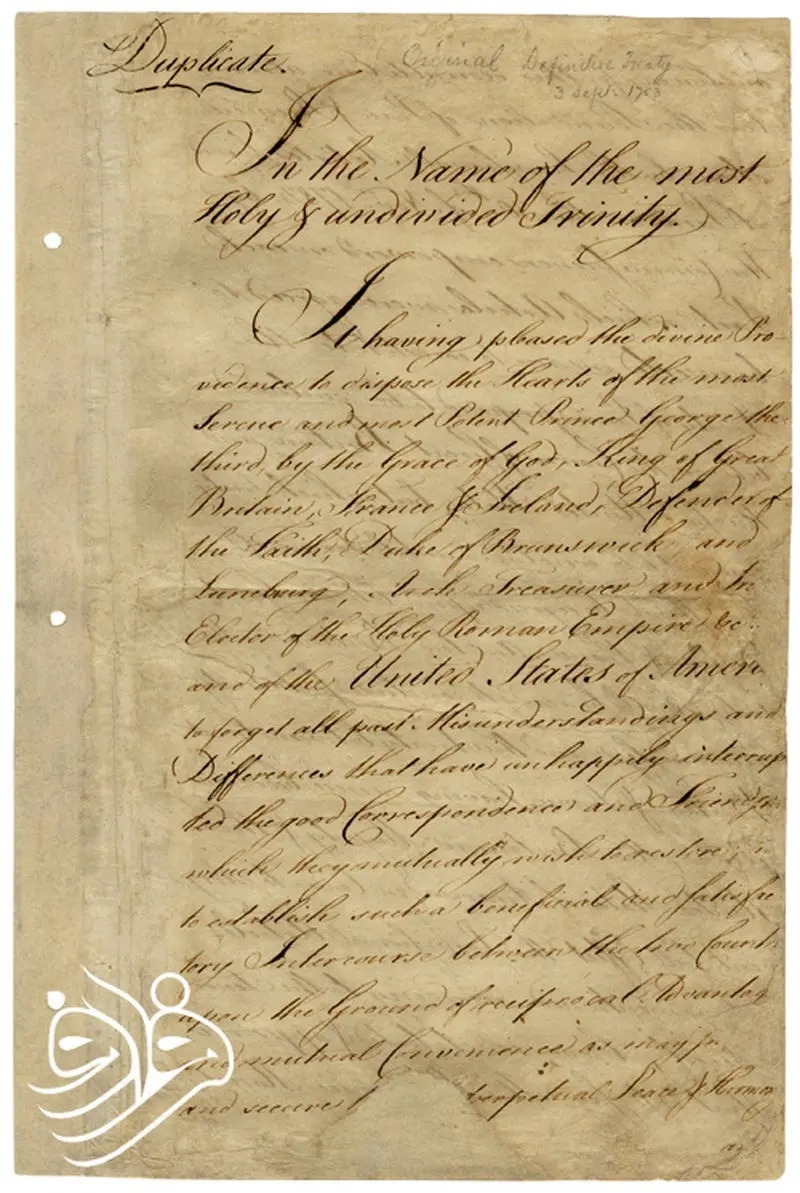 Duplicate.
Original Definitive Treaty
3 Sept. 1783
In the Name of the most
Holy & undivided Trinity.
It having pleased the divine Pro-
vidence to dispose the Hearts of the most
Serene and most Potent Prince George the
third, by the Grace of God, King of Great
Britain, France & Ireland, Defender of
the Faith, Duke of Brunswick and
Luneburg, Arch Treasurer and
Elector of the Holy Roman Empire &c.
and of the United States of Ameri
to forget all past Misunderstandings and
Differences that have unhappily interrup
ted the good Correspondence and Friendsh
which they mutually wish to restore;
to establish such a beneficial and satisfac
tory Intercourse between the two Countr
upon the Ground of reciprocal Advantag
and mutual Convenience as may
and secure perpetual Peace & Harmon